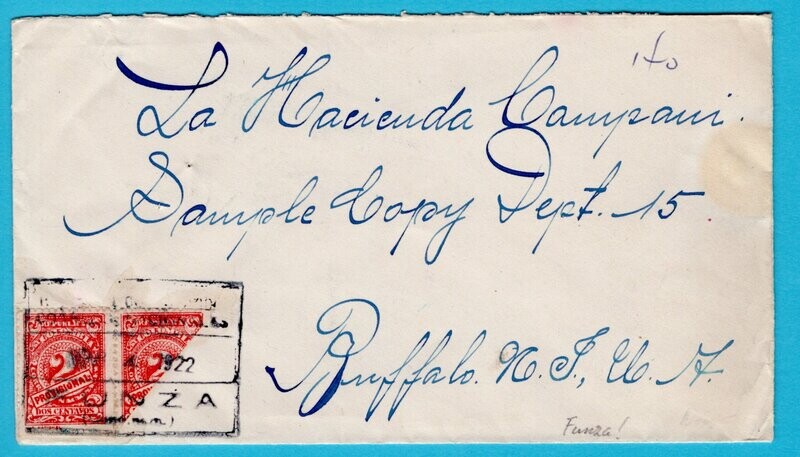 La Hacienda Compani.
Sample Copy Dept. 15
Buffalo. N. J, U. A.
2 2
PROVISIONAL
DOS CENTAVOS
1922
Funza!